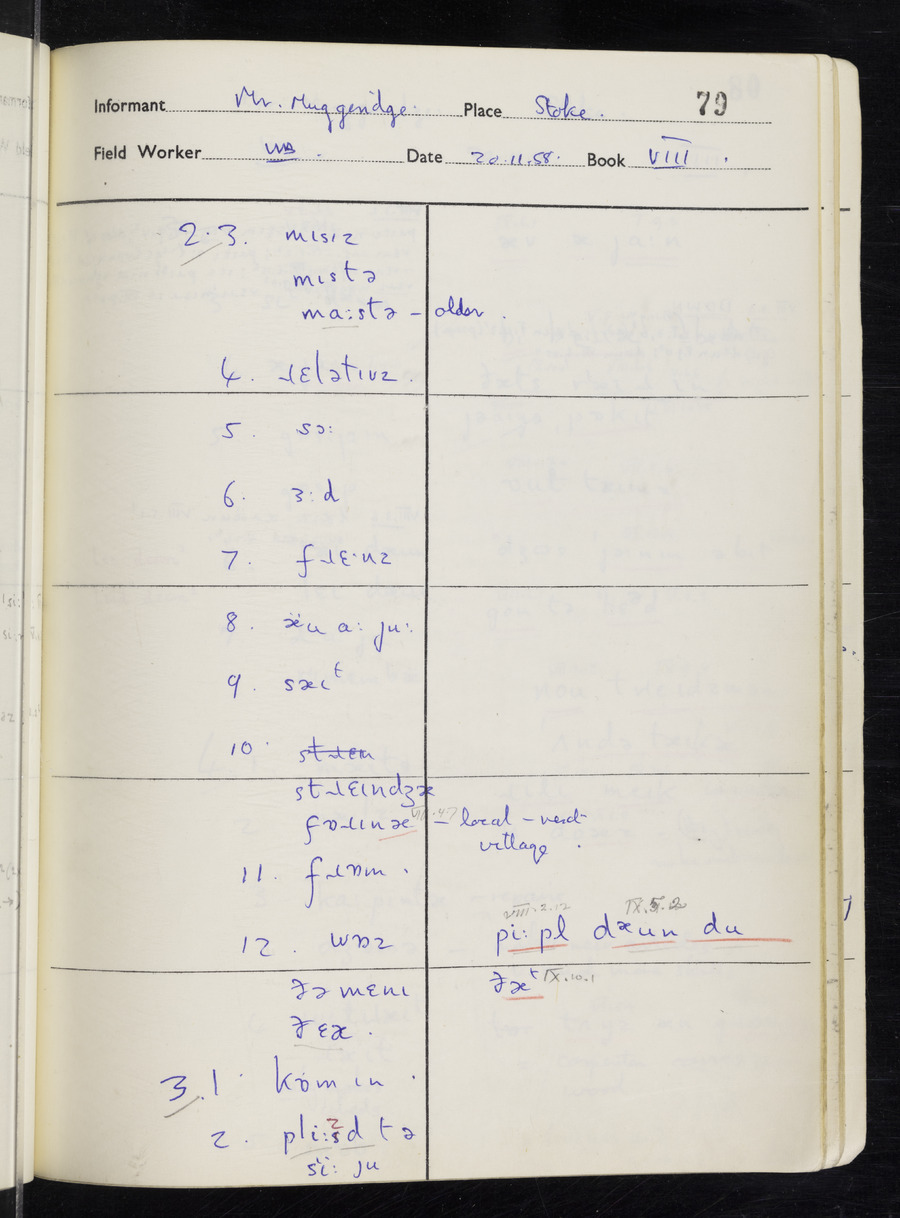 Informant Mr. Muggeridge. Place Stoke. 79
Field Worker WB. Date 20.11.58. Book VIII.
2.3. mɪsɪz
mɪstə
ma:stə – older.
4. ɹɛlətɪvz.
5. sɔ:
6. ɜ:d
7. fɹɛ·nz
8. a: ju:
9. sæɪᵗ
10.
stɹɛɪndʒæ
fɒɹɪnæ VIII.47 – local – next
village.
11. fɹɒm.
12. wɒz pi:pl dᵆun du
VIII.2.12 IX.5.2
ðə mɛnɪ ðæᵗ IX.10.1
ðɛæ.
3.1. köm ɪn.
2. pli:zd tə
si: ju